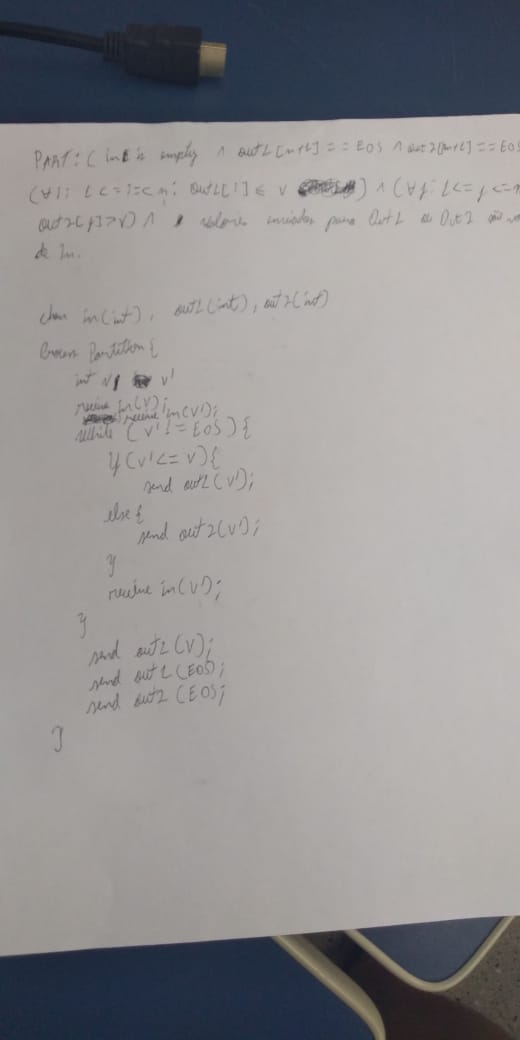 PART: ( in1 is empty ∧ out1[n+1] == EOS ∧ out2[m+1] == EOS
(∀i: 1<=i=<n: out1[i] ≤ v) ∧ (∀j: 1<=j<=
out2[j]>v) ∧ valores enviados para Out1 Out2 são
de In.
chan in(int), out1(int), out2(int)
Process Partition{
int v, v'
receive in(v); receive in(v');
while (v' != EOS){
if(v'<= v){
send out1(v');
else{
send out2(v');
}
receive in(v');
}
send out1(v);
send out1(EOS);
send out2(EOS);
}